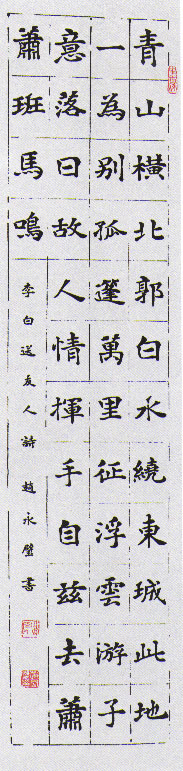 青山橫北郭白水繞東城此地
一為別孤蓬萬里征浮雲游子
意落日故人情揮手自茲去蕭
蕭班馬鳴
李白送友人詩 趙永璧書